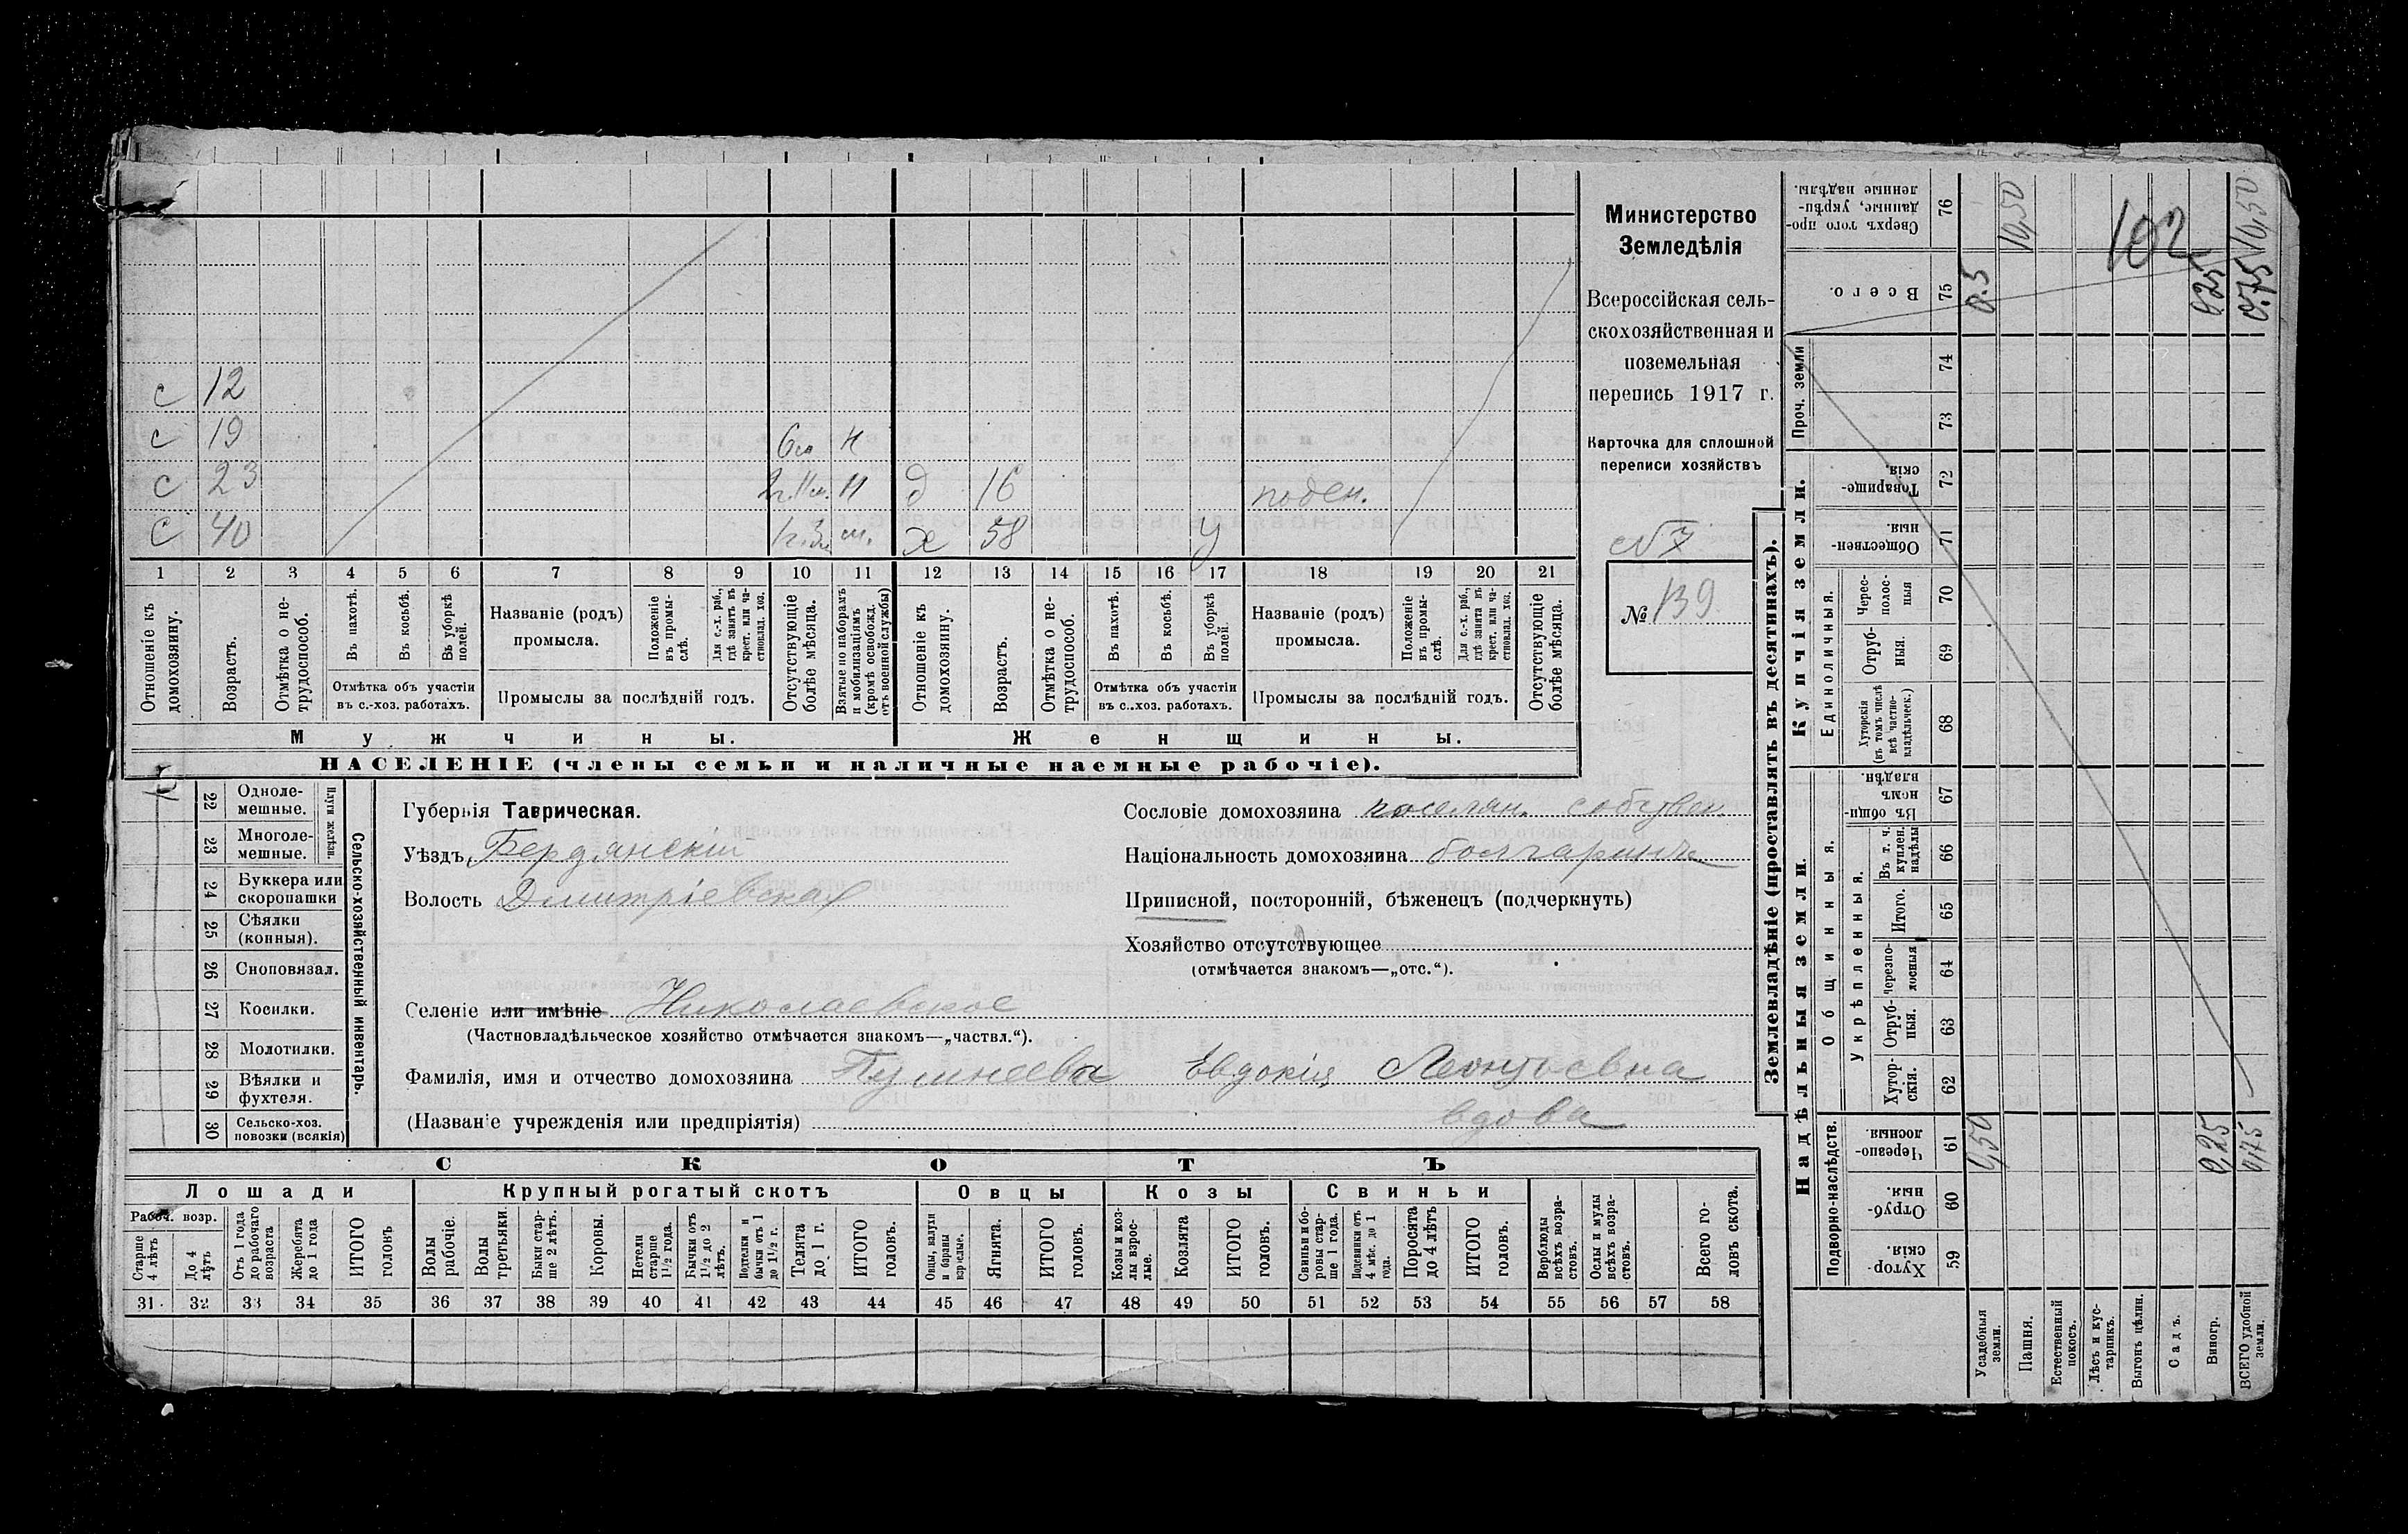 Министерство
Земледѣлія
Всероссійская сель-
скохозяйственная и
поземельная
перепись 1917 г.
Карточка для сплошной
переписи хозяйствъ
№ 7
№ 139
с 12
с 19 6м н
с 23 н д 16 поден.
с 40 х 58 у
1 2 3 4 5 6 7 8 9 10 11 12 13 14 15 16 17 18 19 20 21
Отношеніе къ домохозяину.
Возрастъ.
Отмѣтка о не-трудоспособ.
Въ пахотѣ.
Въ косьбѣ.
Въ уборкѣ полей.
Отмѣтка объ участіи
въ с.-хоз. работахъ.
Названіе (родъ)
промысла.
Положеніе въ промы-слѣ.
Для с.-х. раб., гдѣ занятъ въ крест. или ча-стновлад. хоз.
Промыслы за послѣдній годъ.
Отсутствующіе болѣе мѣсяца.
Взятые по наборамъ и мобилизаціямъ (кромѣ освобожд. отъ военной службы)
Отношеніе къ домохозяину.
Возрастъ.
Отмѣтка о не-трудоспособ.
Въ пахотѣ.
Въ косьбѣ.
Въ уборкѣ полей.
Отмѣтка объ участіи
въ с.-хоз. работахъ.
Названіе (родъ)
промысла.
Положеніе въ промы-слѣ.
Для с.-х. раб., гдѣ занята въ крест. или ча-стновлад. хоз.
Промыслы за послѣдній годъ.
Отсутствующіе болѣе мѣсяца.
Мужчины. Женщины.
НАСЕЛЕНІЕ (члены семьи и наличные наемные рабочіе).
Сельско-хозяйственный инвентарь.
Плуги желѣзн.
22 Одноле-мешные.
23 Многоле-мешные.
24 Буккера или скоропашки
25 Сѣялки (конныя).
26 Сноповязал.
27 Косилки.
28 Молотилки.
29 Вѣялки и фухтеля.
30 Сельско-хоз. повозки (всякія)
Губернія Таврическая.
Уѣздъ Бердянскій
Волость Димитріевская
Селеніе или имѣніе Николаевское
(Частновладѣльческое хозяйство отмѣчается знакомъ—„частвл.“).
Фамилія, имя и отчество домохозяина Евдокія Леонтьевна
вдова
(Названіе учрежденія или предпріятія)
Сословіе домохозяина поселян. собствен.
Національность домохозяина болгаринъ
Приписной, посторонній, бѣженецъ (подчеркнуть)
Хозяйство отсутствующее
(отмѣчается знакомъ—„отс.“).
СКОТЪ
Лошади Крупный рогатый скотъ Овцы Козы Свиньи
Рабоч. возр.
Старше 4 лѣтъ
До 4 лѣтъ
Отъ 1 года до рабочаго возраста
Жеребята до 1 года
ИТОГО головъ
Волы рабочіе.
Волы третьяки.
Быки стар-ше 2 лѣтъ.
Коровы.
Нетели старше 1 1/2 года.
Бычки отъ 1 1/2 до 2 лѣтъ.
Подтелки и бычки отъ 1 до 1 1/2 г.
Телята до 1 г.
ИТОГО головъ.
Овцы, валухи и бараны взрослые.
Ягнята.
ИТОГО головъ.
Козы и коз-лы взрос-лые.
Козлята
ИТОГО головъ.
Свиньи и бо-ровы стар-ше 1 года.
Подсвинки отъ 4 мѣс. до 1 года.
Поросята до 4 лѣтъ
ИТОГО головъ.
Верблюды всѣхъ возра-стовъ.
Ослы и мулы всѣхъ возра-стовъ.
Всего го-ловъ скота.
31 32 33 34 35 36 37 38 39 40 41 42 43 44 45 46 47 48 49 50 51 52 53 54 55 56 57 58
Землевладѣніе (проставлять въ десятинахъ).
Надѣльныя земли.
Купчія земли.
Подворно-наслѣдств.
Общинныя.
Укрѣпленныя.
Единоличныя.
Проч. земли
Хутор-скія. 59
Отруб-ныя. 60
Черезпо-лосныя 61
Хутор-скія. 62
Отруб-ныя. 63
Черезпо-лосныя 64
Итого. 65
Въ т. ч. куплен. надѣлы 66
Въ общи-номъ владѣн. 67
Хуторскія (въ томъ числѣ всѣ частно-владѣльческ.) 68
Отруб-ныя. 69
Черес-полос-ныя 70
Обществен-ныя. 71
Товарище-скія. 72
73
74
Всего. 75
Сверхъ того про-данные, укрѣп-ленные надѣлы. 76
Усадебныя земли. 0,50 0.5
Пашня. 10,50
Естественный покосъ.
Лѣсъ и кус-тарникъ.
Выгонъ цѣлин.
Садъ.
Виногр. 0,25 0,25
ВСЕГО удобной земли. 0,75 0.75 10,50
102